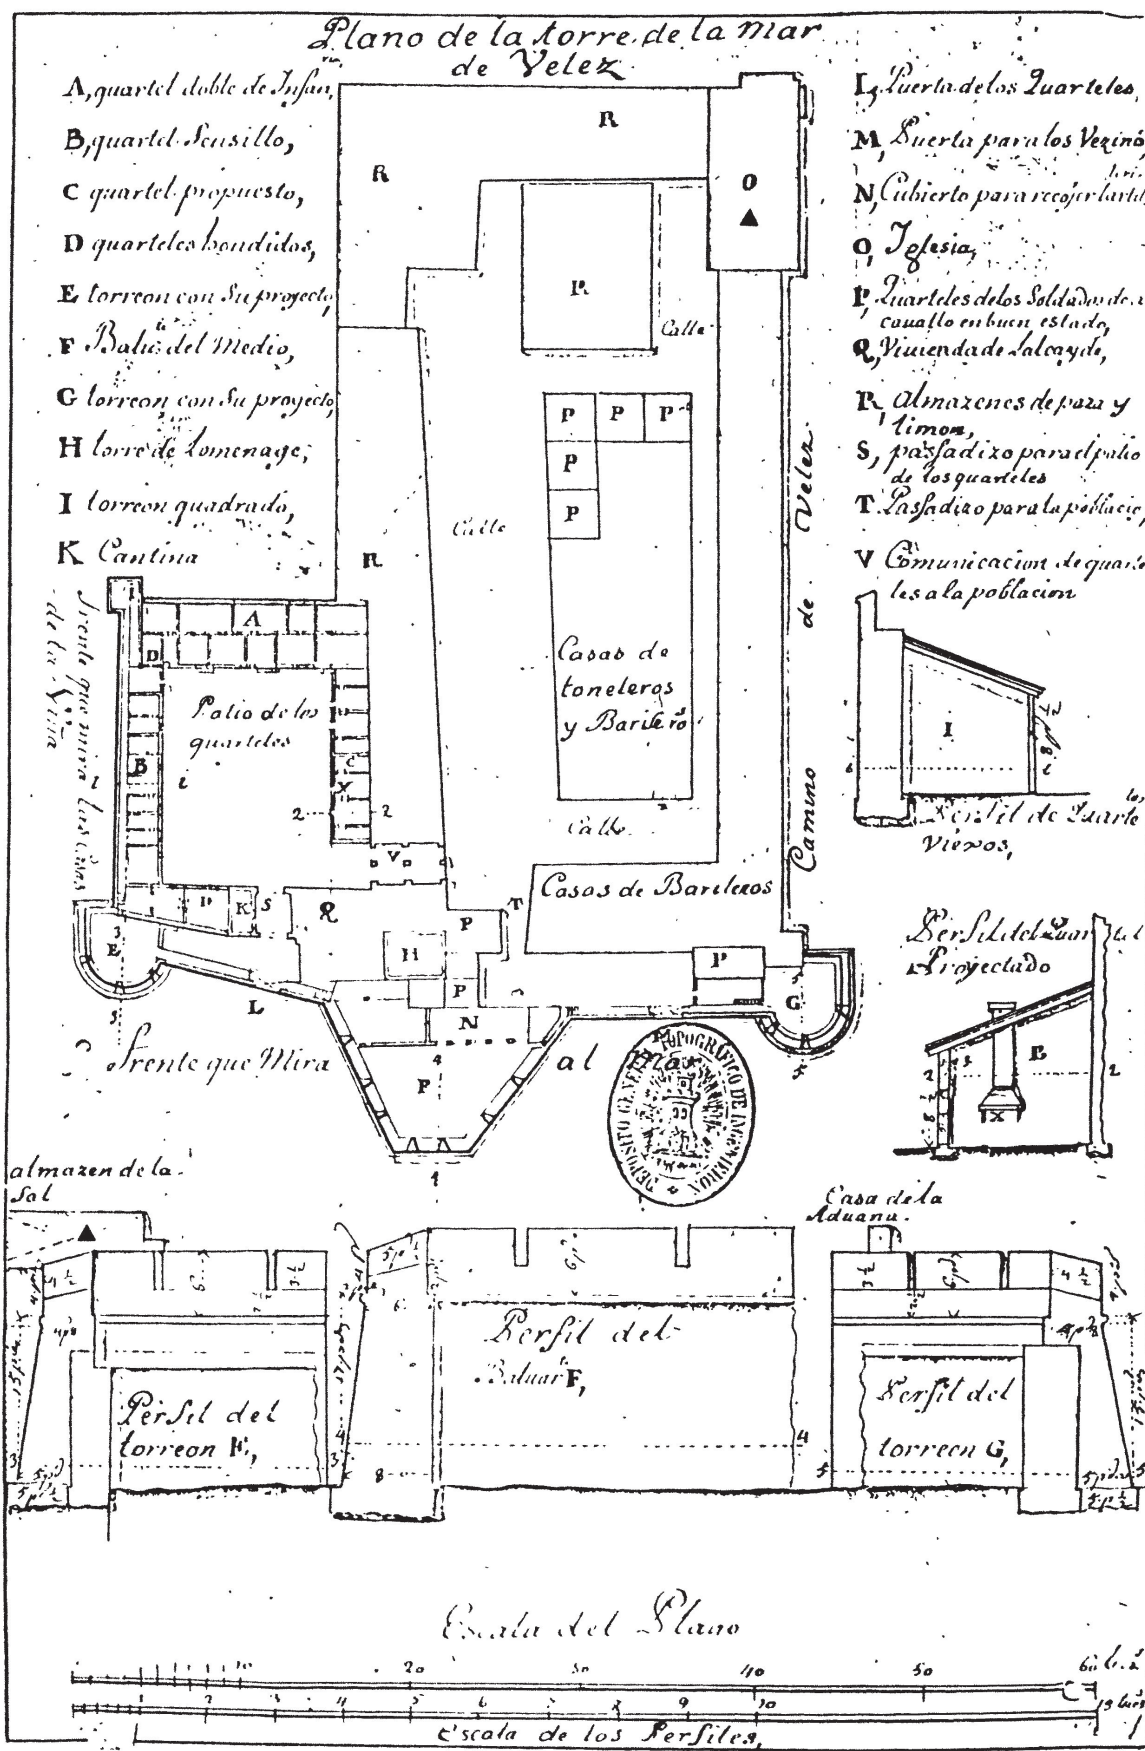 Plano de la torre de la mar
de Velez
A, quartel doble de Infan,
B, quartel Sensillo,
C quartel propuesto,
D quarteles hondidos,
E torreon con Su proyecto,
F Balu.te del Medio,
G torreon con Su proyecto,
H torre de lomenage,
I torreon quadrado,
K Cantina
L, Puerta de los Quarteles,
M, Puerta para los Vezinos
N, Cubierto para recojer
O, Iglesia,
P, Quarteles de los Soldados de a
cauallo en buen estado,
Q, Viuienda de lalcayde,
R, almazenes de paxa y
limon,
S, passadizo para el patio
de los quarteles
T Passadizo para la poblacio,
V Comunicacion de quarte
les a la poblacion
R
R
O
R
Calle
P P P
P
P
Calle
R
Camino de Velez
Casas de
toneleros
y Barilero
Calle
Casas de Barileros
A
D
Patio de los
quarteles
B
1
2 2
V
P K S
Q
P
T
H
P
P
E
3
G
5
L
N
4
F
Frente que mira las casas
de la Viña
Frente que Mira al Mar
DEPOSITO GENERAL TOPOGRÁFICO DE INGENIEROS
I
Perfil de Quarte
Viexos,
Perfil del Quartel
Proyectado
B
2 2
X
almazen de la
Sal
Casa de la
Aduana.
Perfil del
torreon E,
Perfil del
Baluar.te F,
Perfil del
torreon G,
3 3
4 4
5 5
Escala del Plano
10 20 30 40 50 60
1 2 3 4 5 6 7 8 9 10
Escala de los Perfiles,